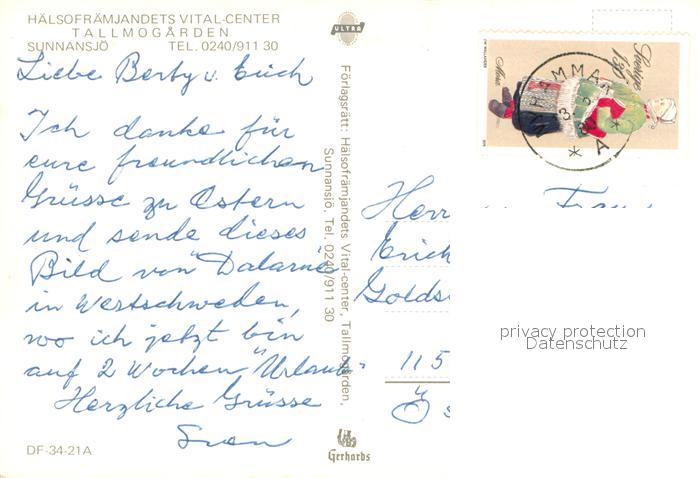 HÄLSOFRÄMJANDETS VITAL-CENTER
TALLMOGÅRDEN
SUNNANSJÖ TEL. 0240/911 30
Liebe Berty u. Erich
Ich danke für
eure freundlichen
Grüsse zu Ostern
und sende dieses
Bild von "Dalarnes
in Westschweden,
wo ich jetzt bin
auf 2 Wochen "Urlaub"
Herzliche Grüsse
Sven
DF-34-21A
ULTRA
Förlagsrätt: Hälsofrämjandets Vital-center, Tallmogården,
Sunnansjö, Tel. 0240/911 30
Gerhards
Sverige
130
Mora
Herr Frau
Erich
Golds
115
Ö
privacy protection
Datenschutz